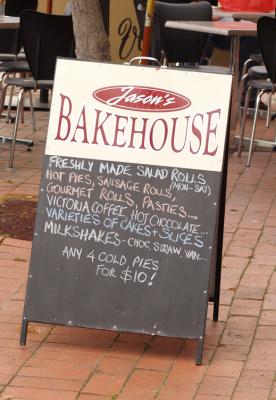 Jason's
BAKEHOUSE
FRESHLY MADE SALAD ROLLS
(MON-SAT)
HOT PIES, SAUSAGE ROLLS,
GOURMET ROLLS, PASTIES...
VICTORIA COFFEE, HOT CHOCOLATE...
VARIETIES OF CAKES + SLICES
MILKSHAKES - CHOC, STRAW, VAN...
ANY 4 COLD PIES
FOR $10!